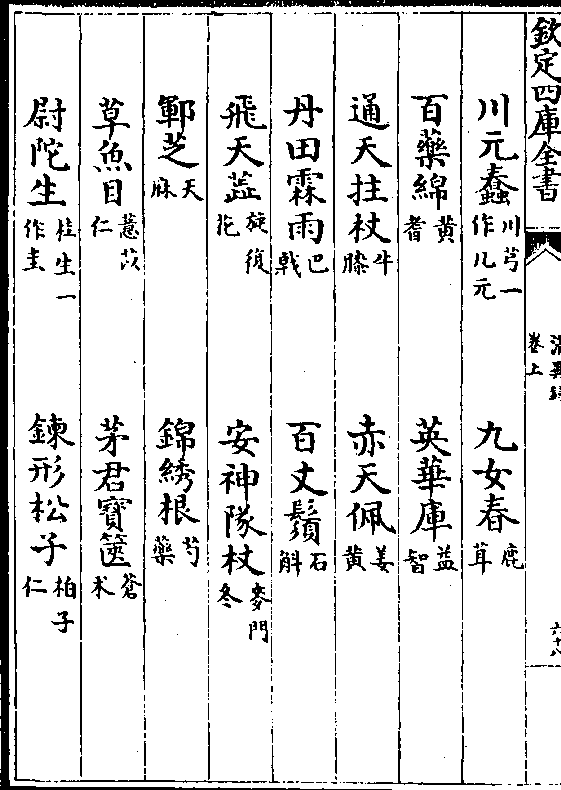 欽定四庫全書
清異錄
卷上
六十八
川元蠢川芎一作儿元 九女春鹿茸
百藥綿黃耆 英華庫益智
通天拄杖牛膝 赤天佩姜黃
丹田霖雨巴戟 百丈鬚石斛
飛天蕋旋復花 安神隊杖麥門冬
鄆芝天麻 錦綉根芍藥
草魚目薏苡仁 茅君寶篋蒼朮
尉陀生桂生一作圭 鍊形松子柏子仁